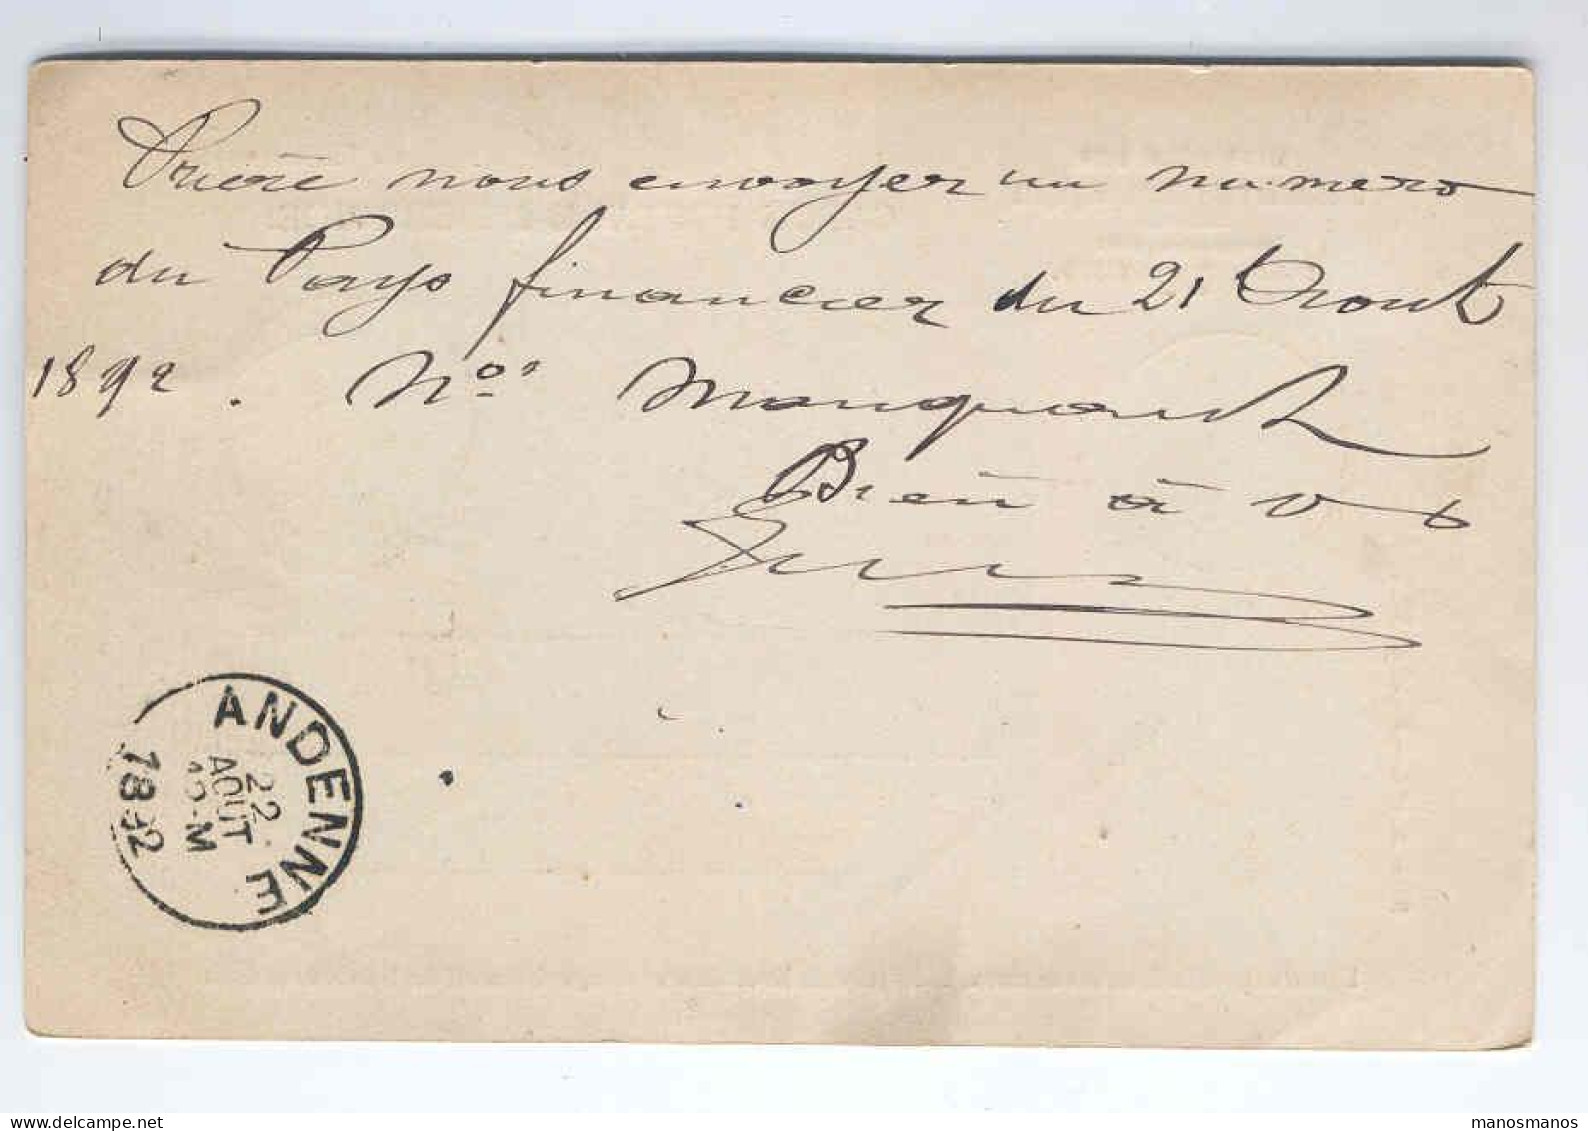 Prière nous envoyer un numero
du Pays financier du 21 Aout
1892. Nos manquant
Bien à vs
ANDENNE
22
AOUT
-M
1892
delcampe.net
manosmanos